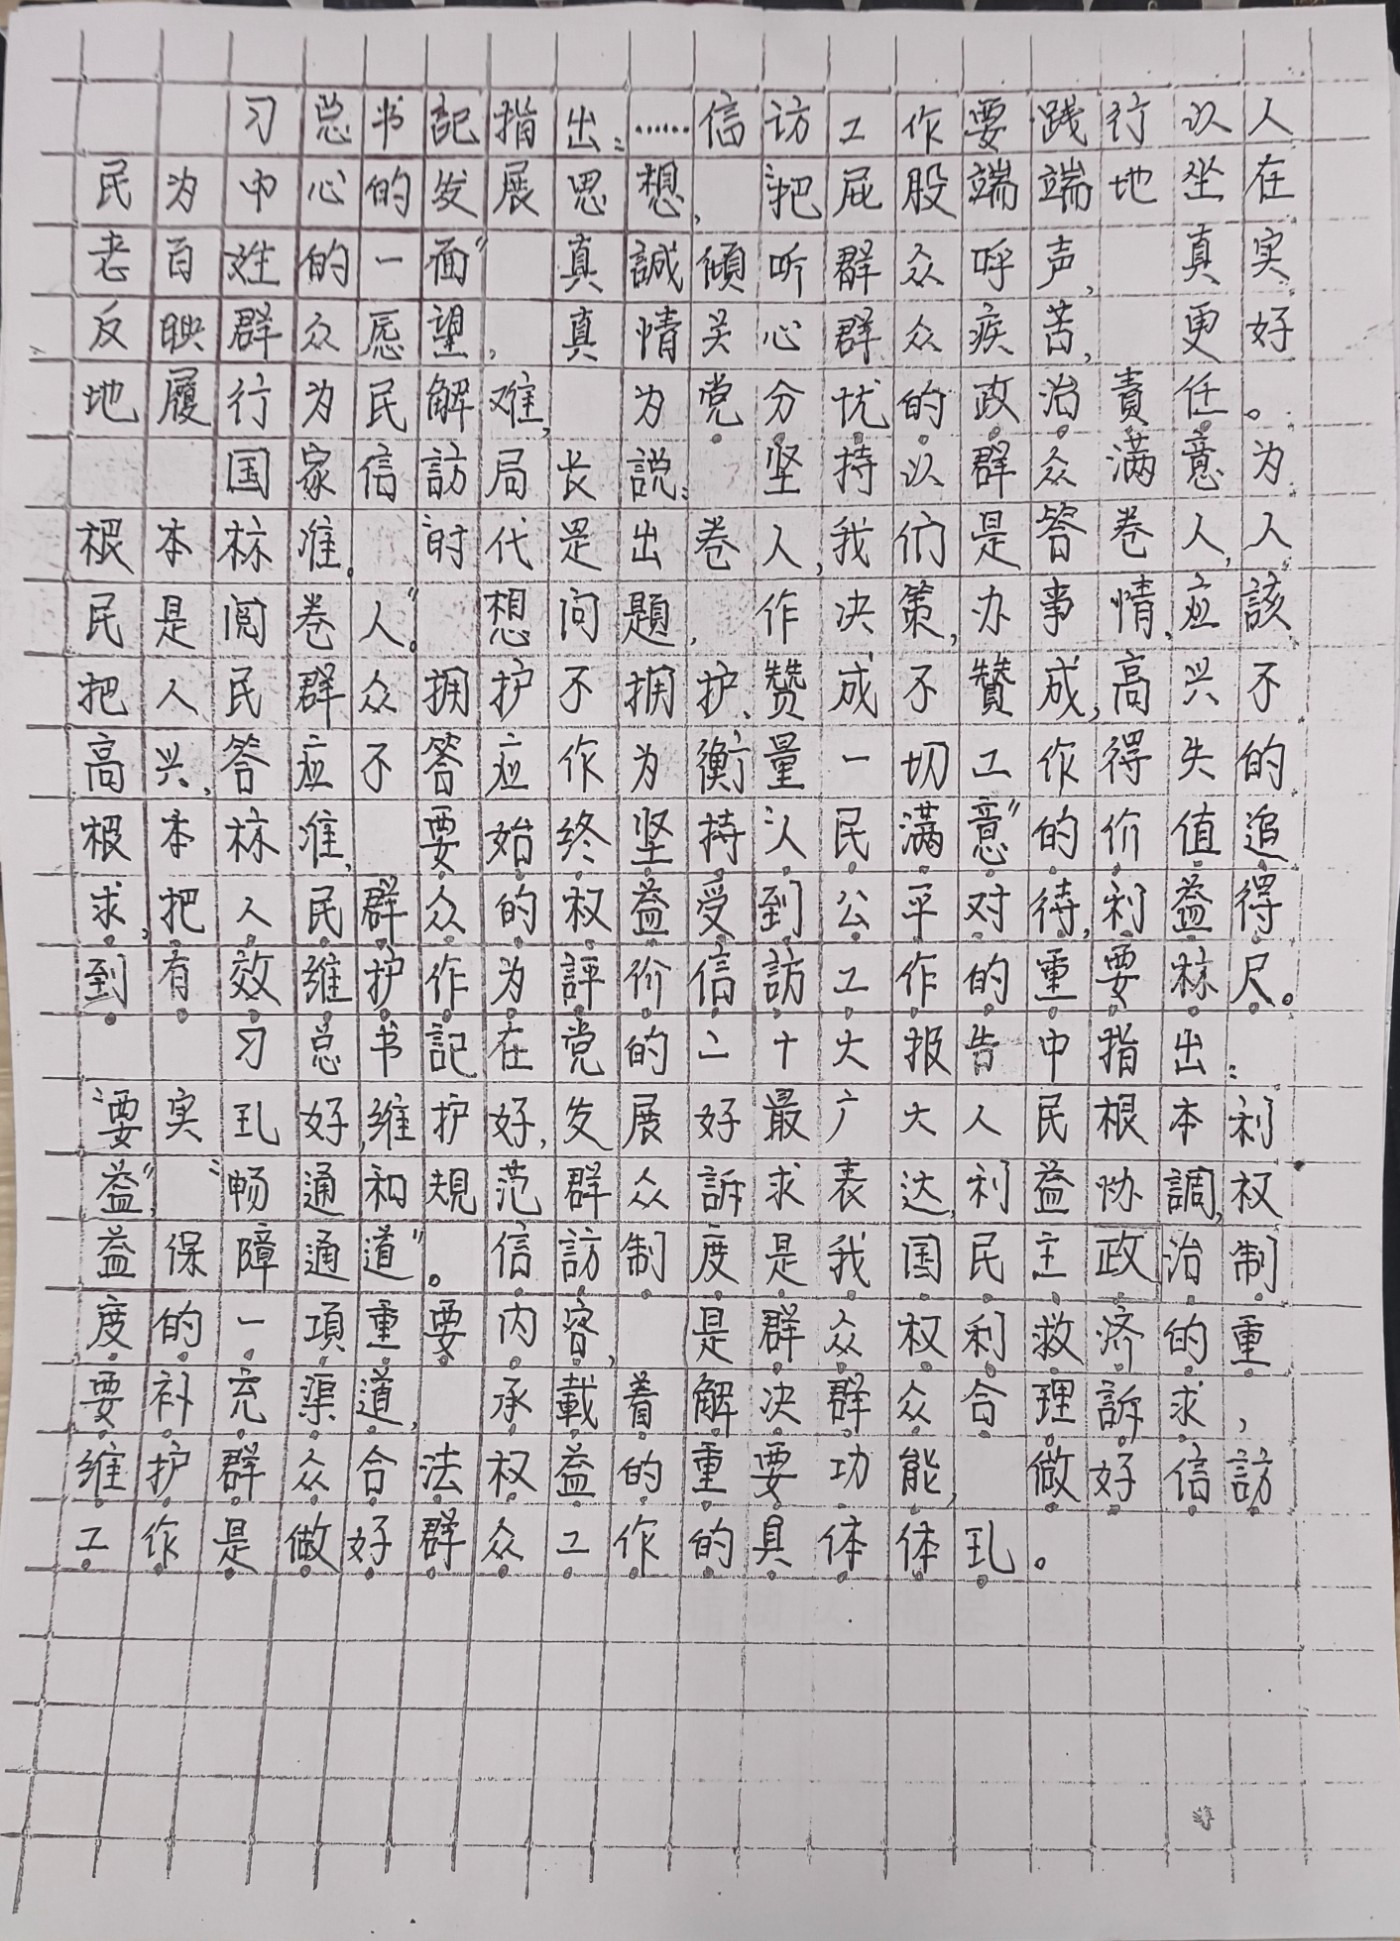 习总书記指出：……信访工作要践行以人
民为中心的发展思想，“把屁股端端地坐在
老百姓的一面”真誠傾听群众呼声，真实
反映群众愿望，真情关心群众疾苦，更好
地履行为民解难，为党分忧的政治責任。
国家信訪局长説：坚持以群众满意为
根本标准。“时代是出卷人，我们是答卷人，人
民是阅卷人。”想问題，作决策，办事情，应該
把人民群众拥护不拥护、赞成不贊成，高兴不
高兴，答应不答应作为衡量一切工作得失的
根本标准，要始终坚持“人民满意”的价值追
求，把人民群众的权益受到公平对待，利益得
到有效维护作为評价信訪工作的重要标尺。
习总书記在党的二十大报告中指出：
“要实现好，维护好，发展好最广大人民根本利
益”，“畅通和規范群众訴求表达，利益协調，权
益保障通道”。信訪制度是我国民主政治制
度的一項重要内容，是群众权利救济的重
要补充渠道，承載着解决群众合理訴求，
维护群众合法权益的重要功能，做好信訪
工作是做好群众工作的具体体现。